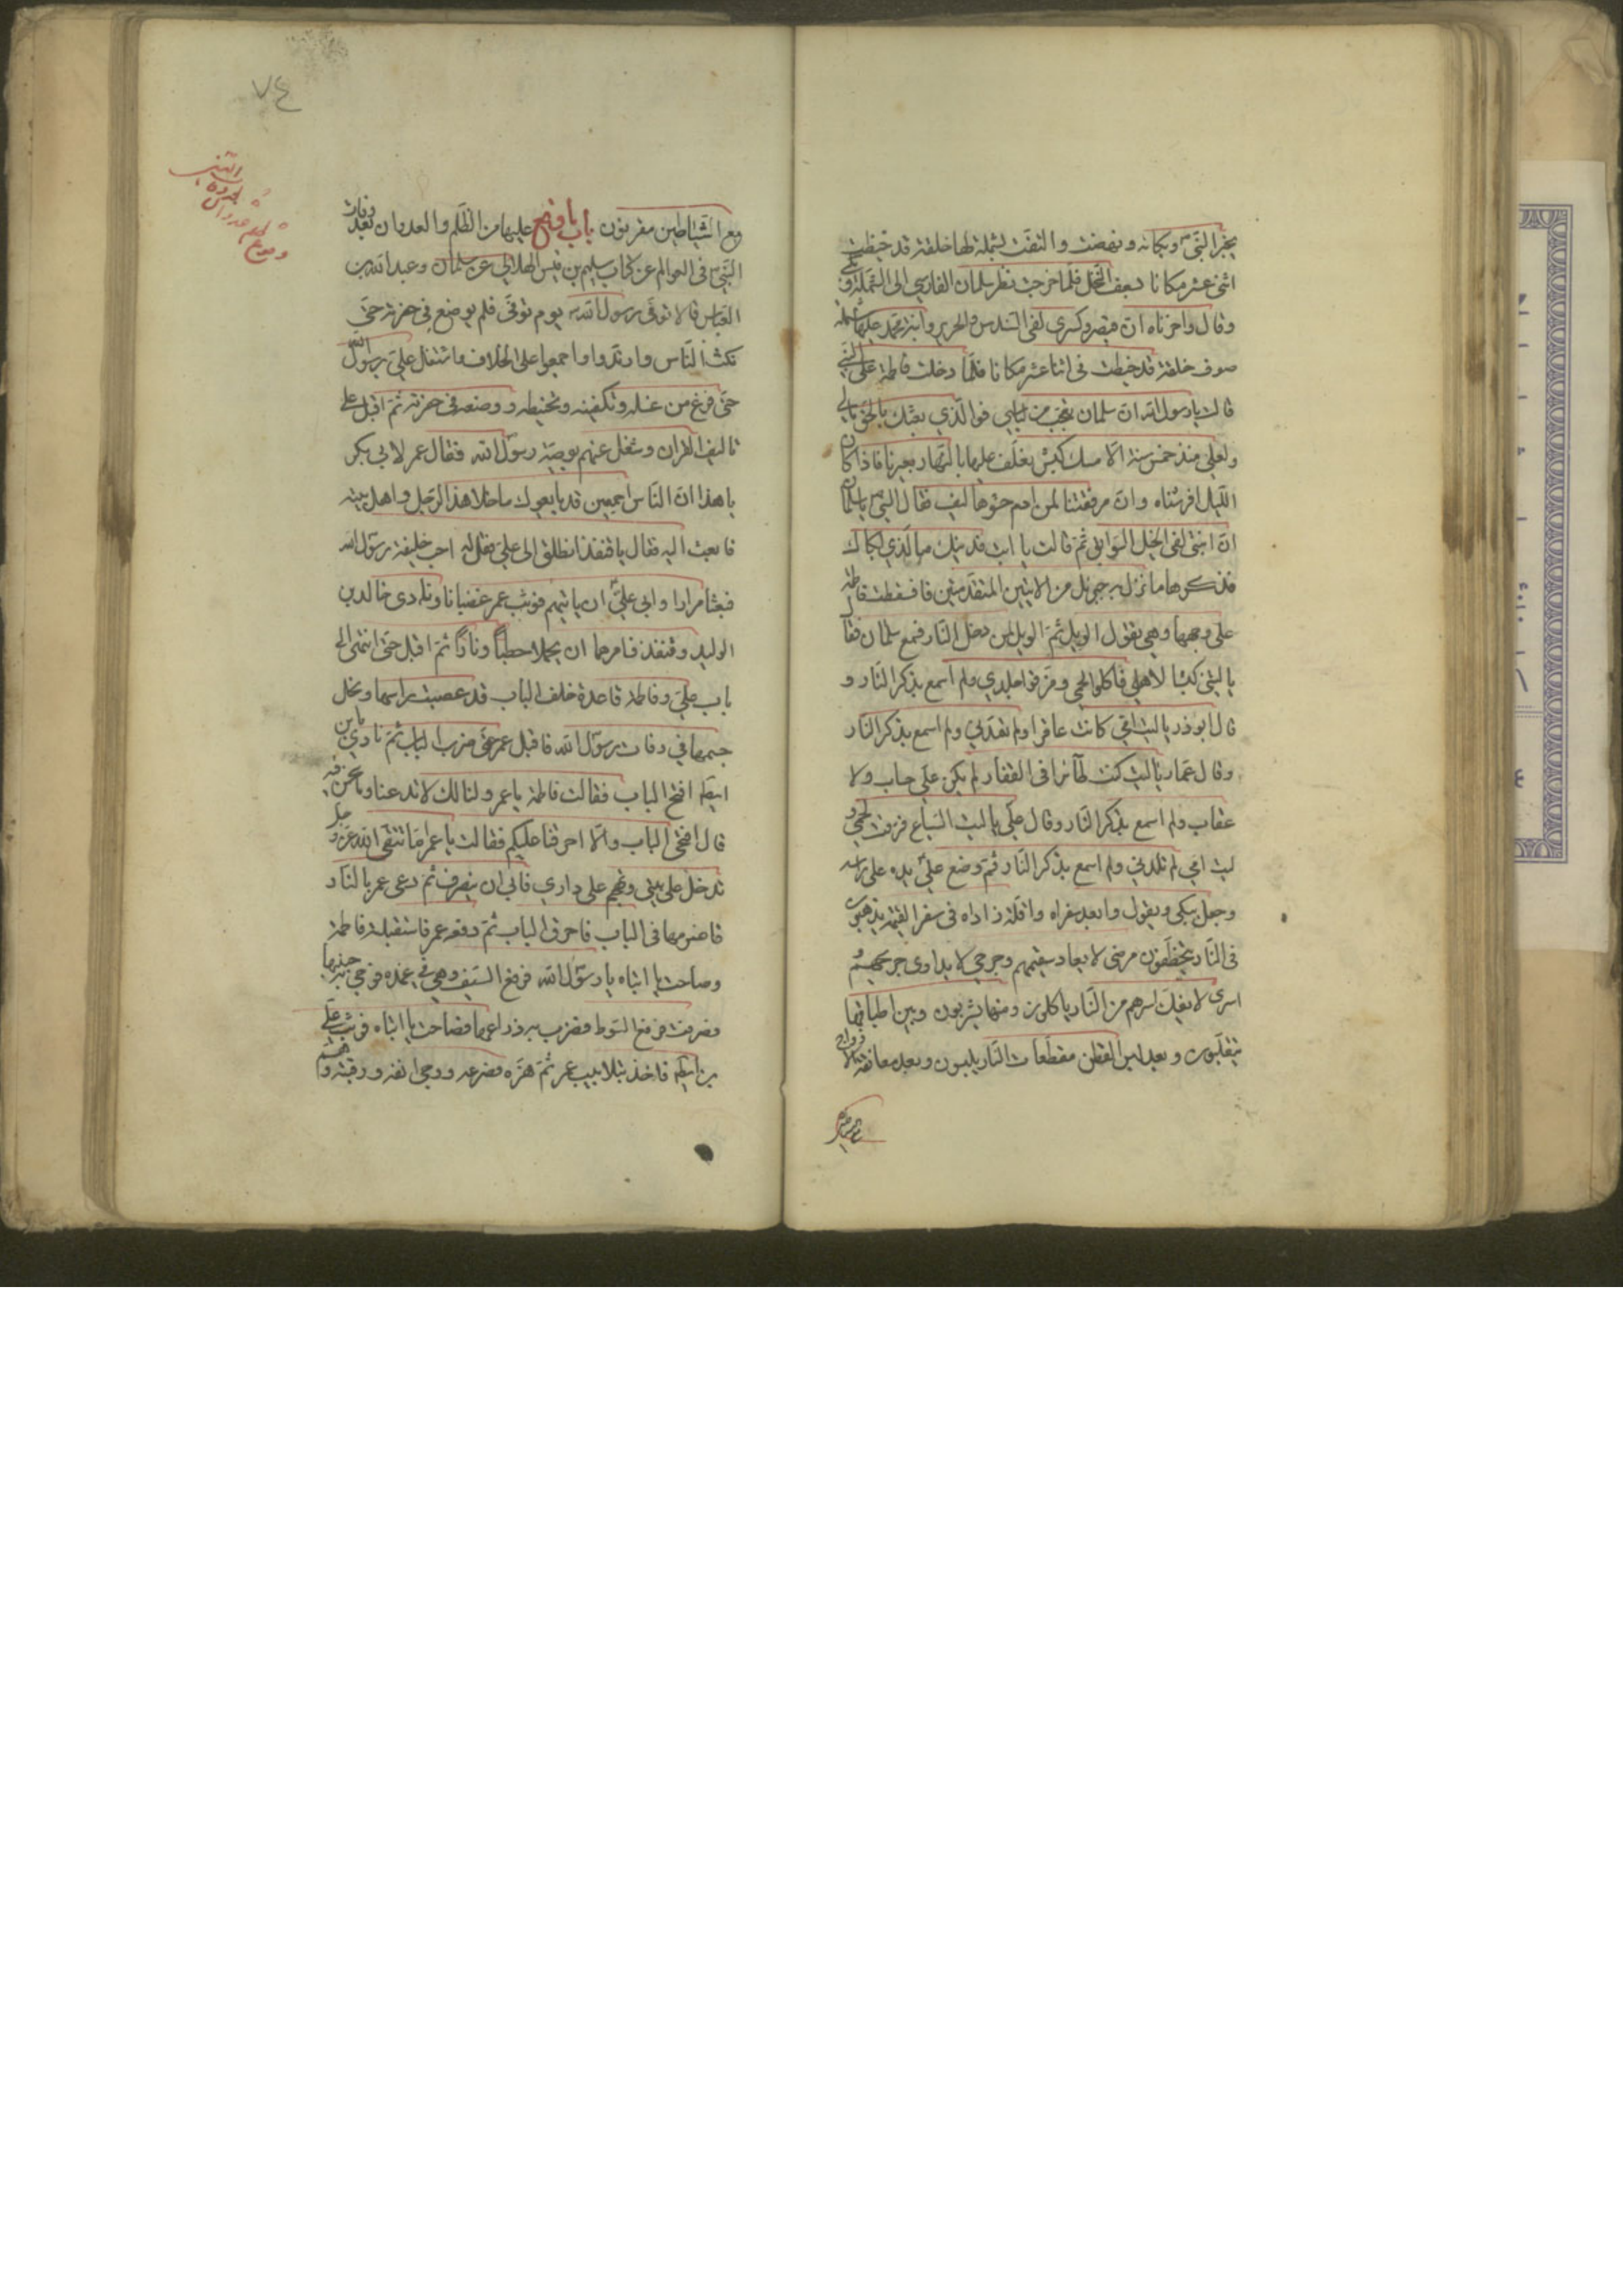 بخبر النبي وبكائه ونهضت والتفت بشملة لها خلقة قد خيطت
اثني عشر مكانا بسعف النخل فلما خرجت نظر سلمان الفارسي الى الشملة وبكى
وقال واحزناه ان قيصر وكسرى لفي السندس والحرير وابنة محمد عليها شملة
صوف خلقة قد خيطت في اثنا عشر مكانا فلما دخلت فاطمة على النبي
قالت يا رسول الله ان سلمان تعجب من لباسي فوالذي بعثك بالحق ما لي
ولعلي منذ خمس سنة الا مسك كبش يعلف عليها بالنهار بعيرنا فاذا كان
الليل افرشناه وان مرفقتنا لمن ادم حشوها ليف فقال النبي يا سلمان
ان ابنتي لفي الخيل السوابق ثم قالت يا ابت فديتك ما الذي ابكاك
فذكر لها ما نزل به جبرئل من الايتين المتقدمتين فافسقطت فاطمة
على وجهها وهي تقول الويل ثم الويل لمن دخل النار فسمع سلمان فقال
يا ليتني كبشا لاهلي فاكلوا لحمي ومزقوا جلدي ولم اسمع بذكر النار و
قال ابوذر يا ليت امي كانت عاقرا ولم تلدني ولم اسمع بذكر النار
وقال عمار يا ليت كنت طائرا في القفار لم يكن علي حساب ولا
عقاب ولم اسمع بذكر النار وقال علي يا ليت السباع مزقت لحمي و
ليت امي لم تلدني ولم اسمع بذكر النار ثم وضع علي يده على راسه
وجعل يبكي ويقول وابعد سفراه واقلة زاداه في سفر القيمة يذهبون
في النار يتخطفون مرضى لا يعاد سقيمهم وجرحى لا يداوى جريحهم
اسرى لا يفك اسرهم من النار ياكلون ومنها يشربون وبين اطباقها
يتقلبون وبعد لبس القطن مقطعات النار يلبسون وبعد معانقة الازواج
مع الشياطين
مع الشياطين مقرنون باب ما وقع عليها من الظلم والعدوان بعد وفات
النبي في العوالم عن كتاب سليم بن قيس الهلالي عن سلمان وعبد الله بن
العباس قالا توفى رسول الله يوم توفى فلم يوضع في حفرته حتى
نكث الناس وارتدوا واجمعوا على الخلاف واشتغل علي برسول الله
حتى فرغ من غسله وتكفينه وتحنيطه ووضعه في حفرته ثم اقبل على
تاليف القران وشغل عنهم بوصية رسول الله فقال عمر لابي بكر
يا هذا ان الناس اجمعين قد بايعوك ما خلا هذا الرجل واهل بيته
فابعث اليه فقال يا قنفذ انطلق الى علي فقل له اجب خليفة رسول الله
فبعثا مرارا وابى علي ان ياتيهم فوثب عمر غضبانا ونادى خالد بن
الوليد وقنفذ فامرهما ان يحملا حطبا ونارا ثم اقبل حتى انتهى الى
باب علي وفاطمة قاعدة خلف الباب قد عصبت براسها ونحل
جسمها في وفات رسول الله فاقبل عمر حتى ضرب الباب ثم نادى يابن
ابيطلم افتح الباب فقالت فاطمة يا عمر ولنا لك لا تدعنا وما نحن فيه
قال افتحي الباب والا احرقنا عليكم فقالت يا عمر اما تتقى الله عز وجل
تدخل على بيتي وتهجم على داري فابى ان ينصرف ثم دعى عمر بالنار
فاضرمها في الباب فاحرق الباب ثم دفعه عمر فاستقبلته فاطمة
وصاحت يا ابتاه يا رسول الله فرفع السيف وهي في غمده فوجى به جنبها
فصرخت فرفع السوط فضرب به ذراعها فصاحت يا ابتاه فوثب علي
بن ابيطلم فاخذ بتلابيب عمر ثم هزه فصرعه ووجى انفه ورقبته وهم
٧٤